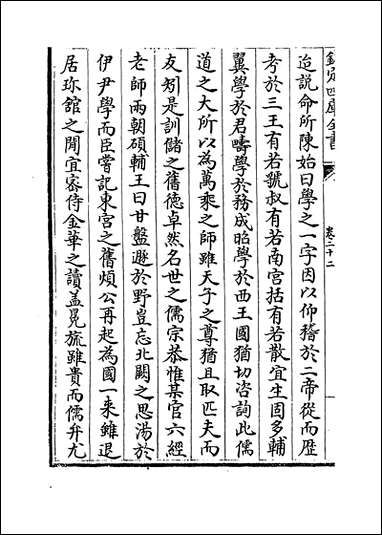 欽定四庫全書
卷二十二
迨説命所陳始曰學之一字因以仰稽於二帝從而厯
考於三王有若虢叔有若南宫括有若散宜生固多輔
翼學於君疇學於務成昭學於西王國猶切咨詢此儒
道之大所以為萬乘之師雖天子之尊猶且取匹夫而
友矧是訓儲之舊德卓然名世之儒宗恭惟某官六經
老師兩朝碩輔王曰甘盤遯於野豈忘北闕之思湯於
伊尹學而臣嘗記東宫之舊煩公再起為國一來雖退
居珎舘之閒宜宻侍金華之讀盖冕旒雖貴而儒弁尤